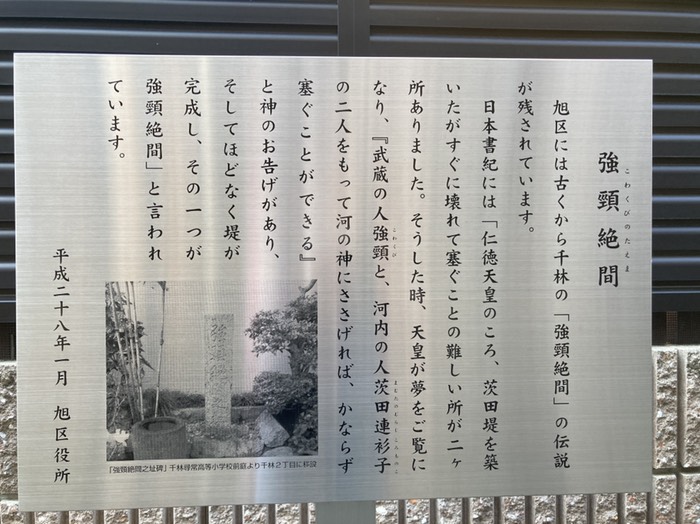 強頸絶間
こわくびのたえま
旭区には古くから千林の「強頸絶間」の伝説
が残されています。
日本書紀には「仁徳天皇のころ、茨田堤を築
いたがすぐに壊れて塞ぐことの難しい所が二ヶ
所ありました。そうした時、天皇が夢をご覧に
なり、『武蔵の人強頸と、河内の人茨田連衫子
こわくび
まむたのむらじころものこ
の二人をもって河の神にささげれば、かならず
塞ぐことができる』
と神のお告げがあり、
そしてほどなく堤が
完成し、その一つが
強頸絶間」と言われ
ています。
「強頸絶間之址碑」千林尋常高等小学校前庭より千林2丁目に移設
平成二十八年一月 旭区役所